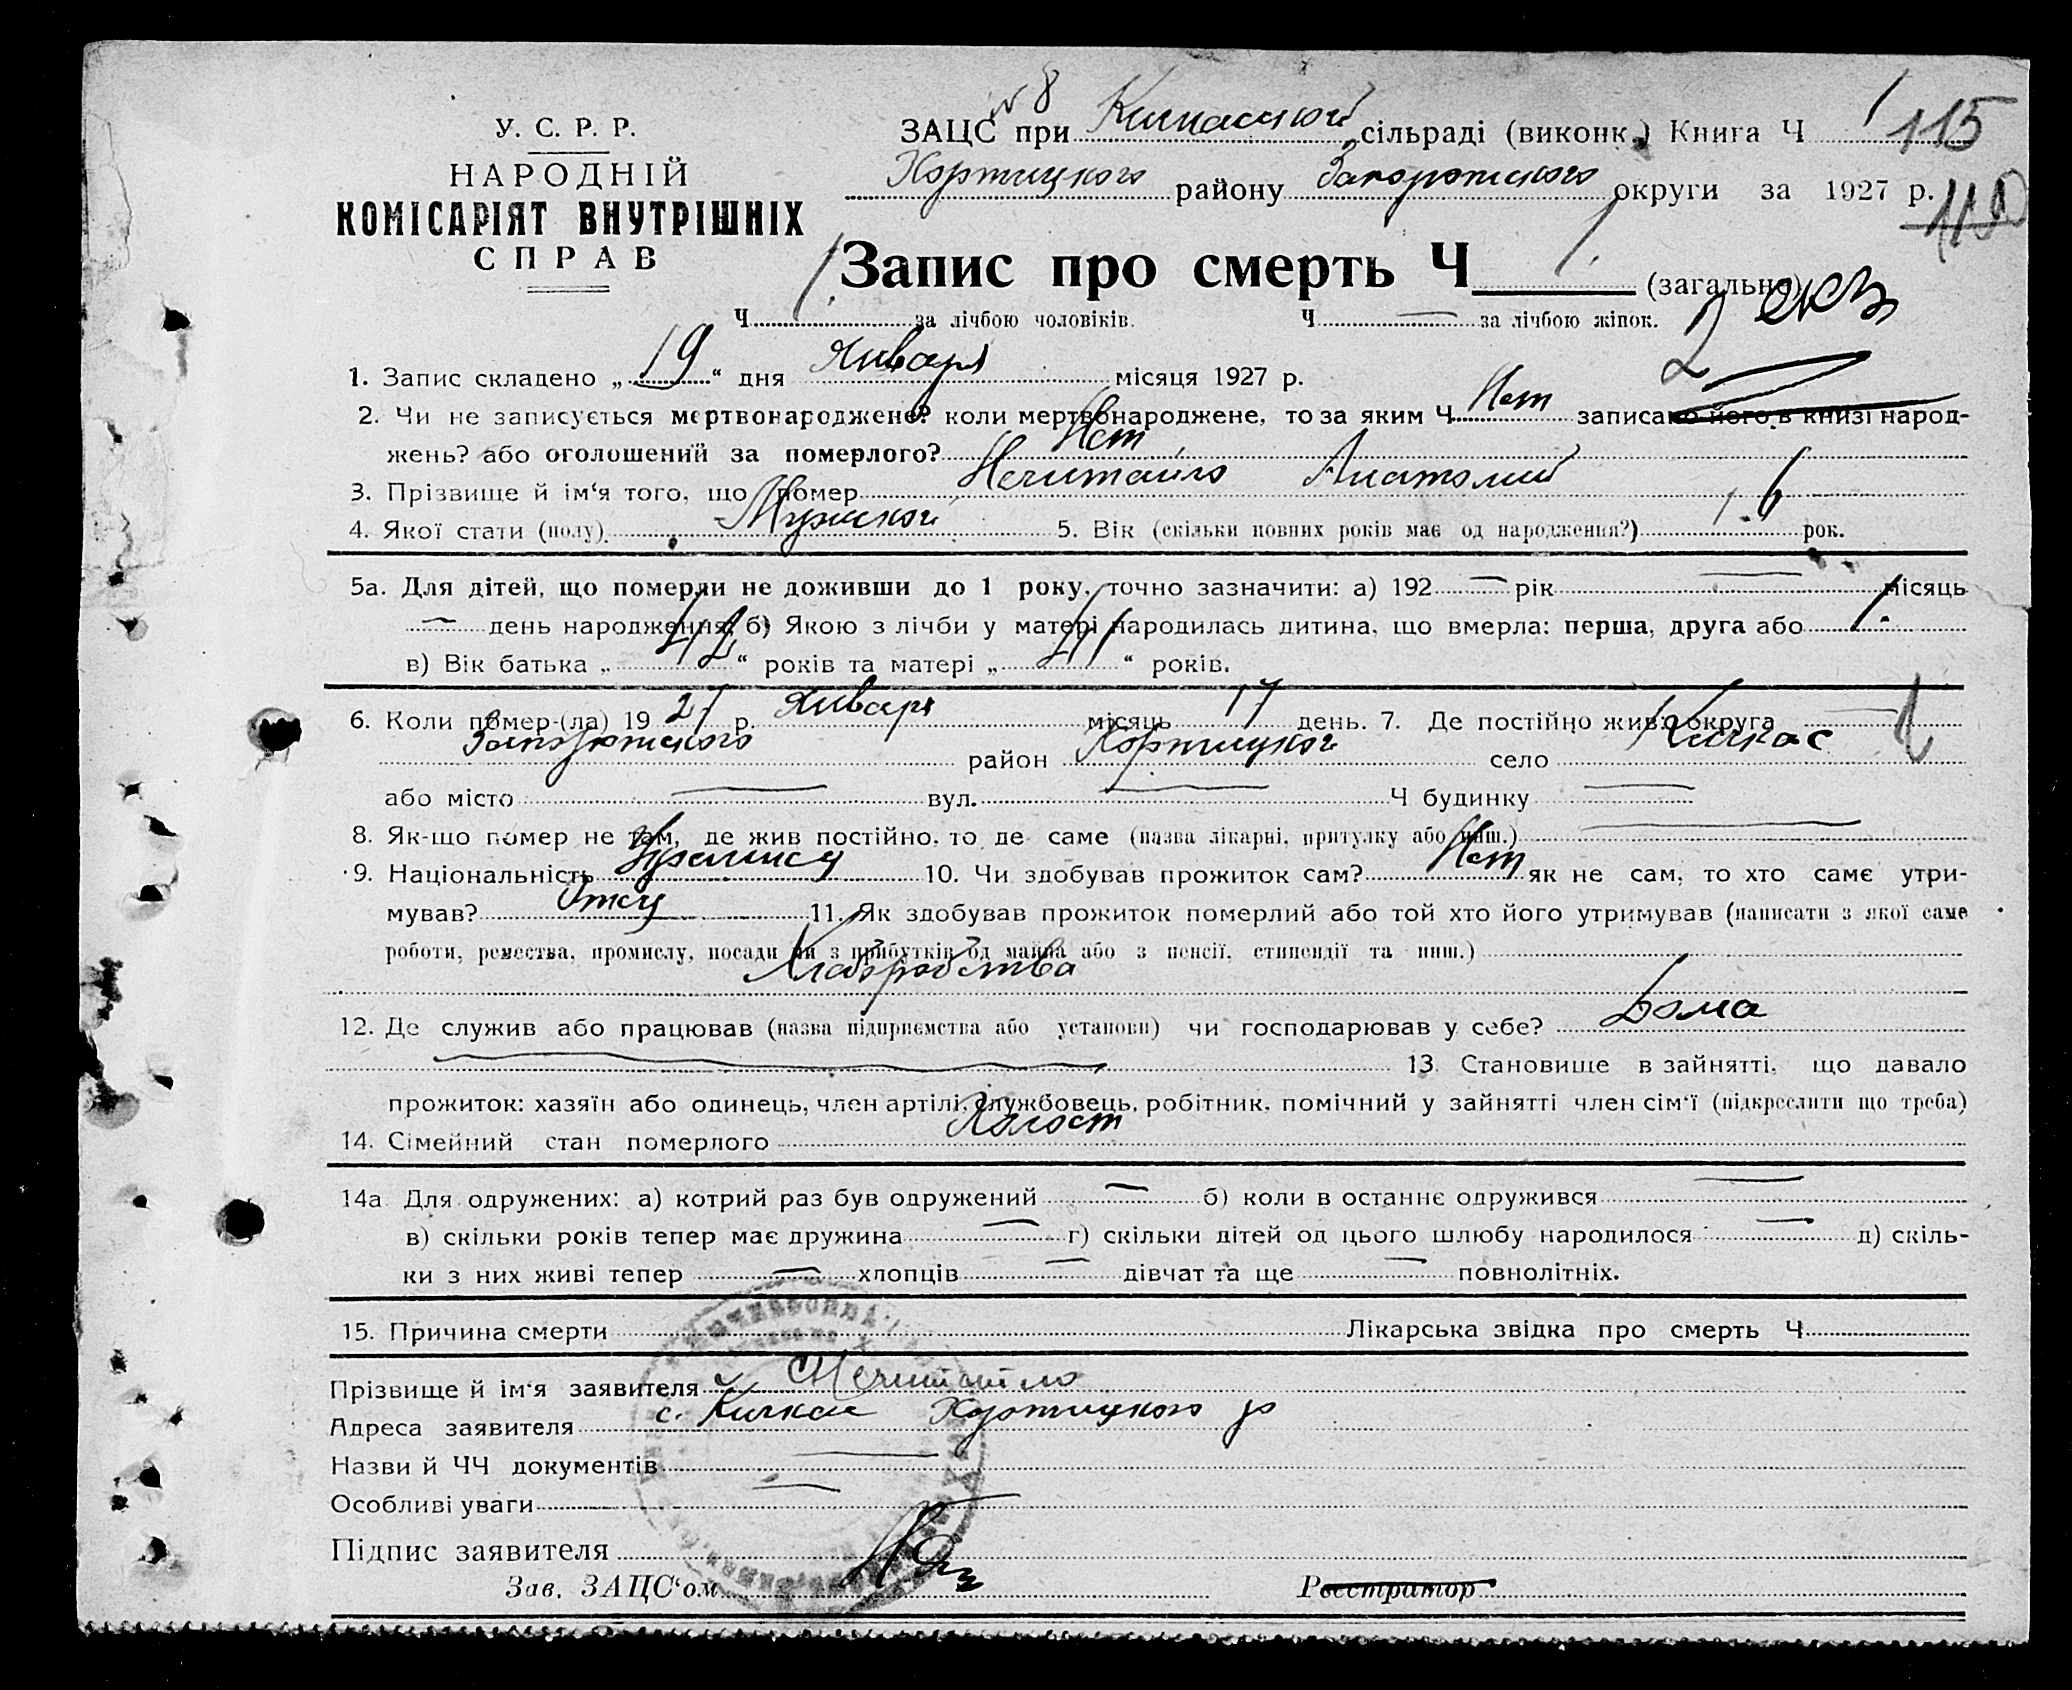 № 8
У. С. Р. Р.
НАРОДНІЙ
КОМІСАРІЯТ ВНУТРІШНІХ
СПРАВ
ЗАЦС при Кичкасской сільраді (виконк.) Книга Ч 1 115
Хортицкого району Запорожского округи за 1927 р.
Запис про смерть Ч 1. (загальне)
2 екз
Ч 1. за лічбою чоловіків. Ч — за лічбою жінок.
1. Запис складено „19“ дня Января місяця 1927 р.
2. Чи не записується мертвонароджене? коли мертвонароджене, то за яким Ч Нет записано його в книзі народ-
жень? або оголошений за померлого? Нет
3. Прізвище й ім‘я того, що помер Нечитайло Анатолий
4. Якої стати (полу) Мужской 5. Вік (скільки повних років має од народження?) 1.6 рок.
5а. Для дітей, що померли не доживши до 1 року, точно зазначити: а) 192 — рік — місяць
— день народження; б) Якою з лічби у матері народилась дитина, що вмерла: перша, друга або 1.
в) Вік батька „42“ років та матері „41“ років.
6. Коли помер-(ла) 1927 р. Января місяць 17 день. 7. Де постійно жив: округа —
Запорожского район Хортицкой село Кичкас
або місто — вул. — Ч будинку —
8. Як-що помер не там, де жив постійно, то де саме (назва лікарні, притулку або инш.) —
9. Національність Украинец 10. Чи здобував прожиток сам? Нет як не сам, то хто саме утри-
мував? Отец 11. Як здобував прожиток померлий або той хто його утримував (написати з якої саме
роботи, ремества, промислу, посади чи з прибутків од майна або з пенсії, стипендії та инш.)
Хлеборобства
12. Де служив або працював (назва підприємства або установи) чи господарював у себе? Дома
— 13. Становище в зайнятті, що давало
прожиток: хазяїн або одинець, член артілі, службовець, робітник, помічний у зайнятті член сім‘ї (підкреслити що треба)
14. Сімейний стан померлого Холост
14а Для одружених: а) котрий раз був одружений — б) коли в останнє одружився —
в) скільки років тепер має дружина — г) скільки дітей од цього шлюбу народилося — д) скіль-
ки з них живі тепер — хлопців — дівчат та ще — повнолітніх.
15. Причина смерти Лікарська звідка про смерть Ч
Прізвище й ім‘я заявителя Нечитайло
Адреса заявителя с. Кичкас Хортицкого р
Назви й ЧЧ документів —
Особливі уваги —
Підпис заявителя
Зав. ЗАЦС‘ом Реєстратор